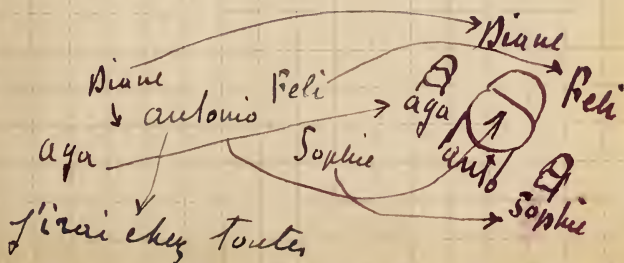 Diane
Diane Feli Feli
antonio aga
aga Sophie anto
Sophie
j'irai chez toutes